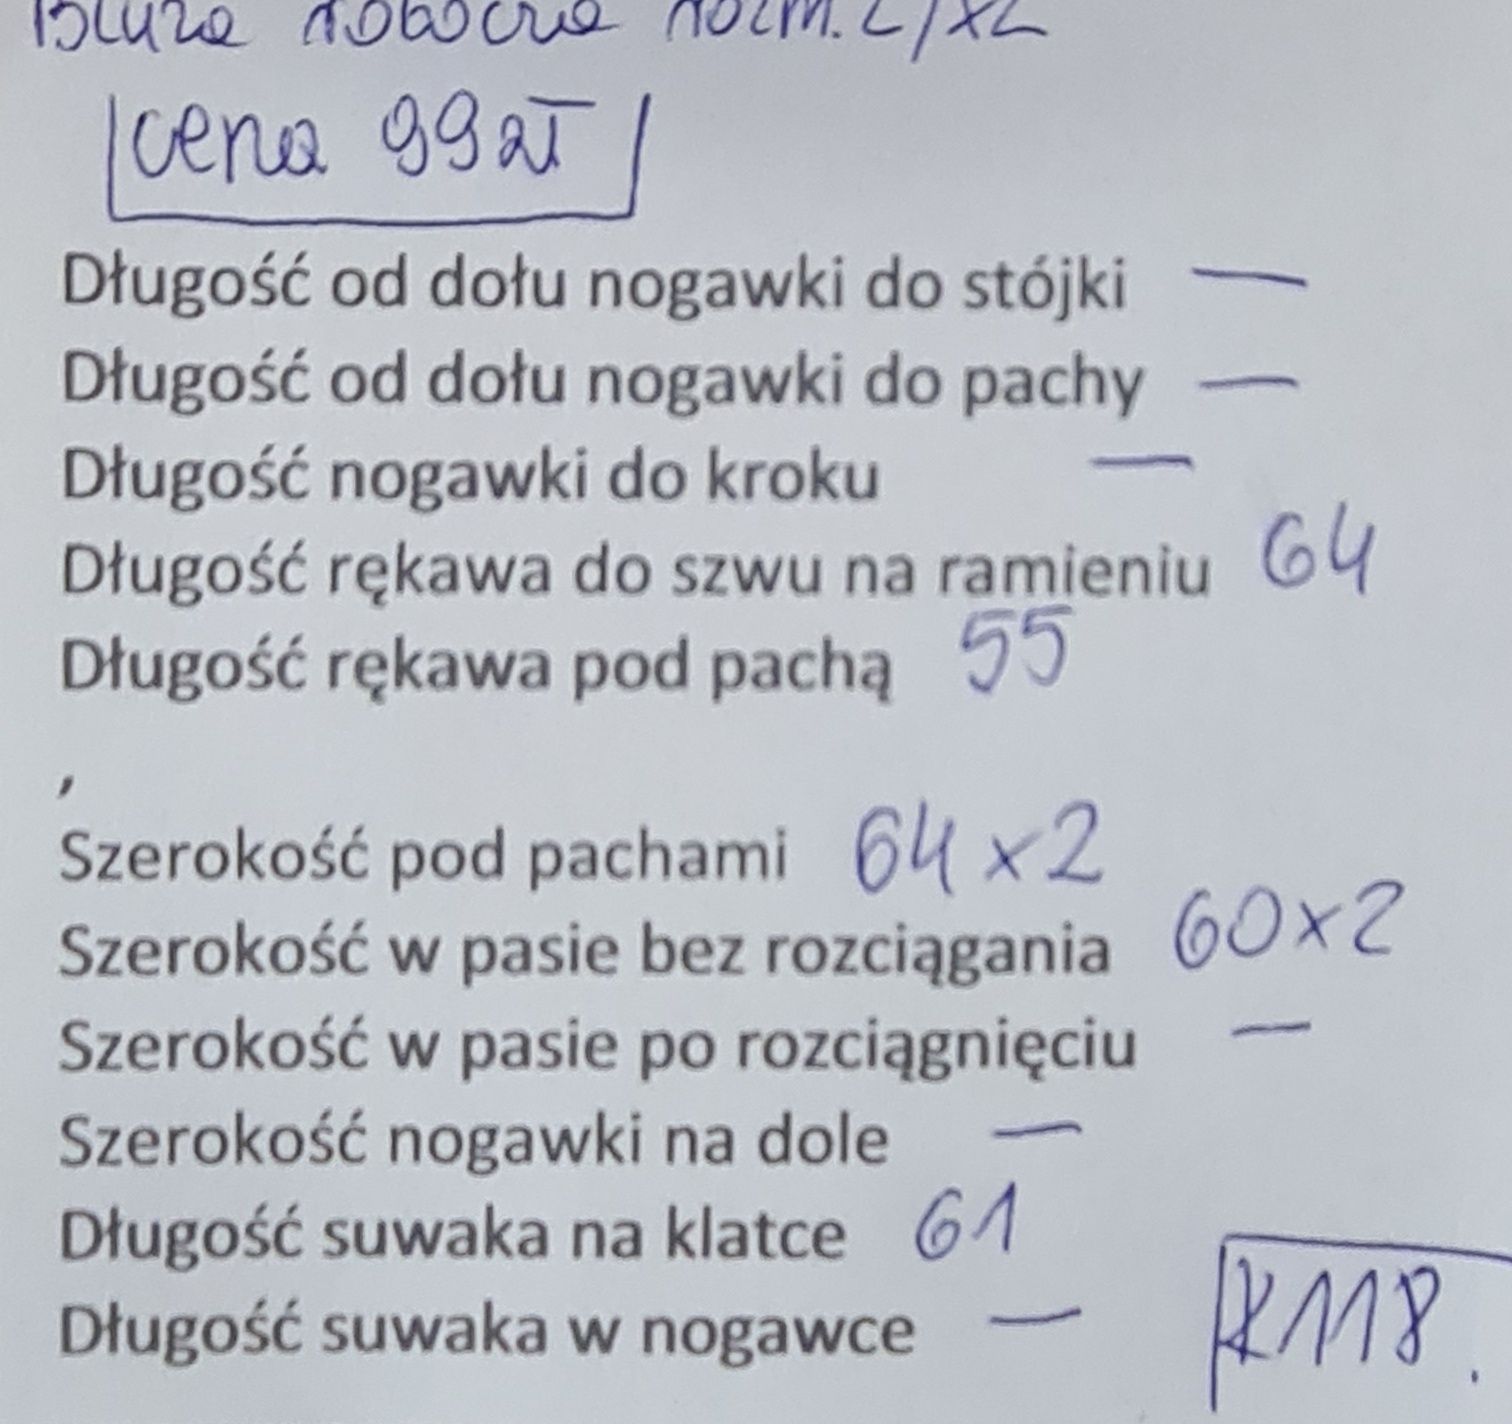 Bluza robocza rozm. L/XL
cena 99 zł
Długość od dołu nogawki do stójki —
Długość od dołu nogawki do pachy —
Długość nogawki do kroku —
Długość rękawa do szwu na ramieniu 64
Długość rękawa pod pachą 55
,
Szerokość pod pachami 64 x 2
Szerokość w pasie bez rozciągania 60 x 2
Szerokość w pasie po rozciągnięciu —
Szerokość nogawki na dole —
Długość suwaka na klatce 61
Długość suwaka w nogawce —
k118.